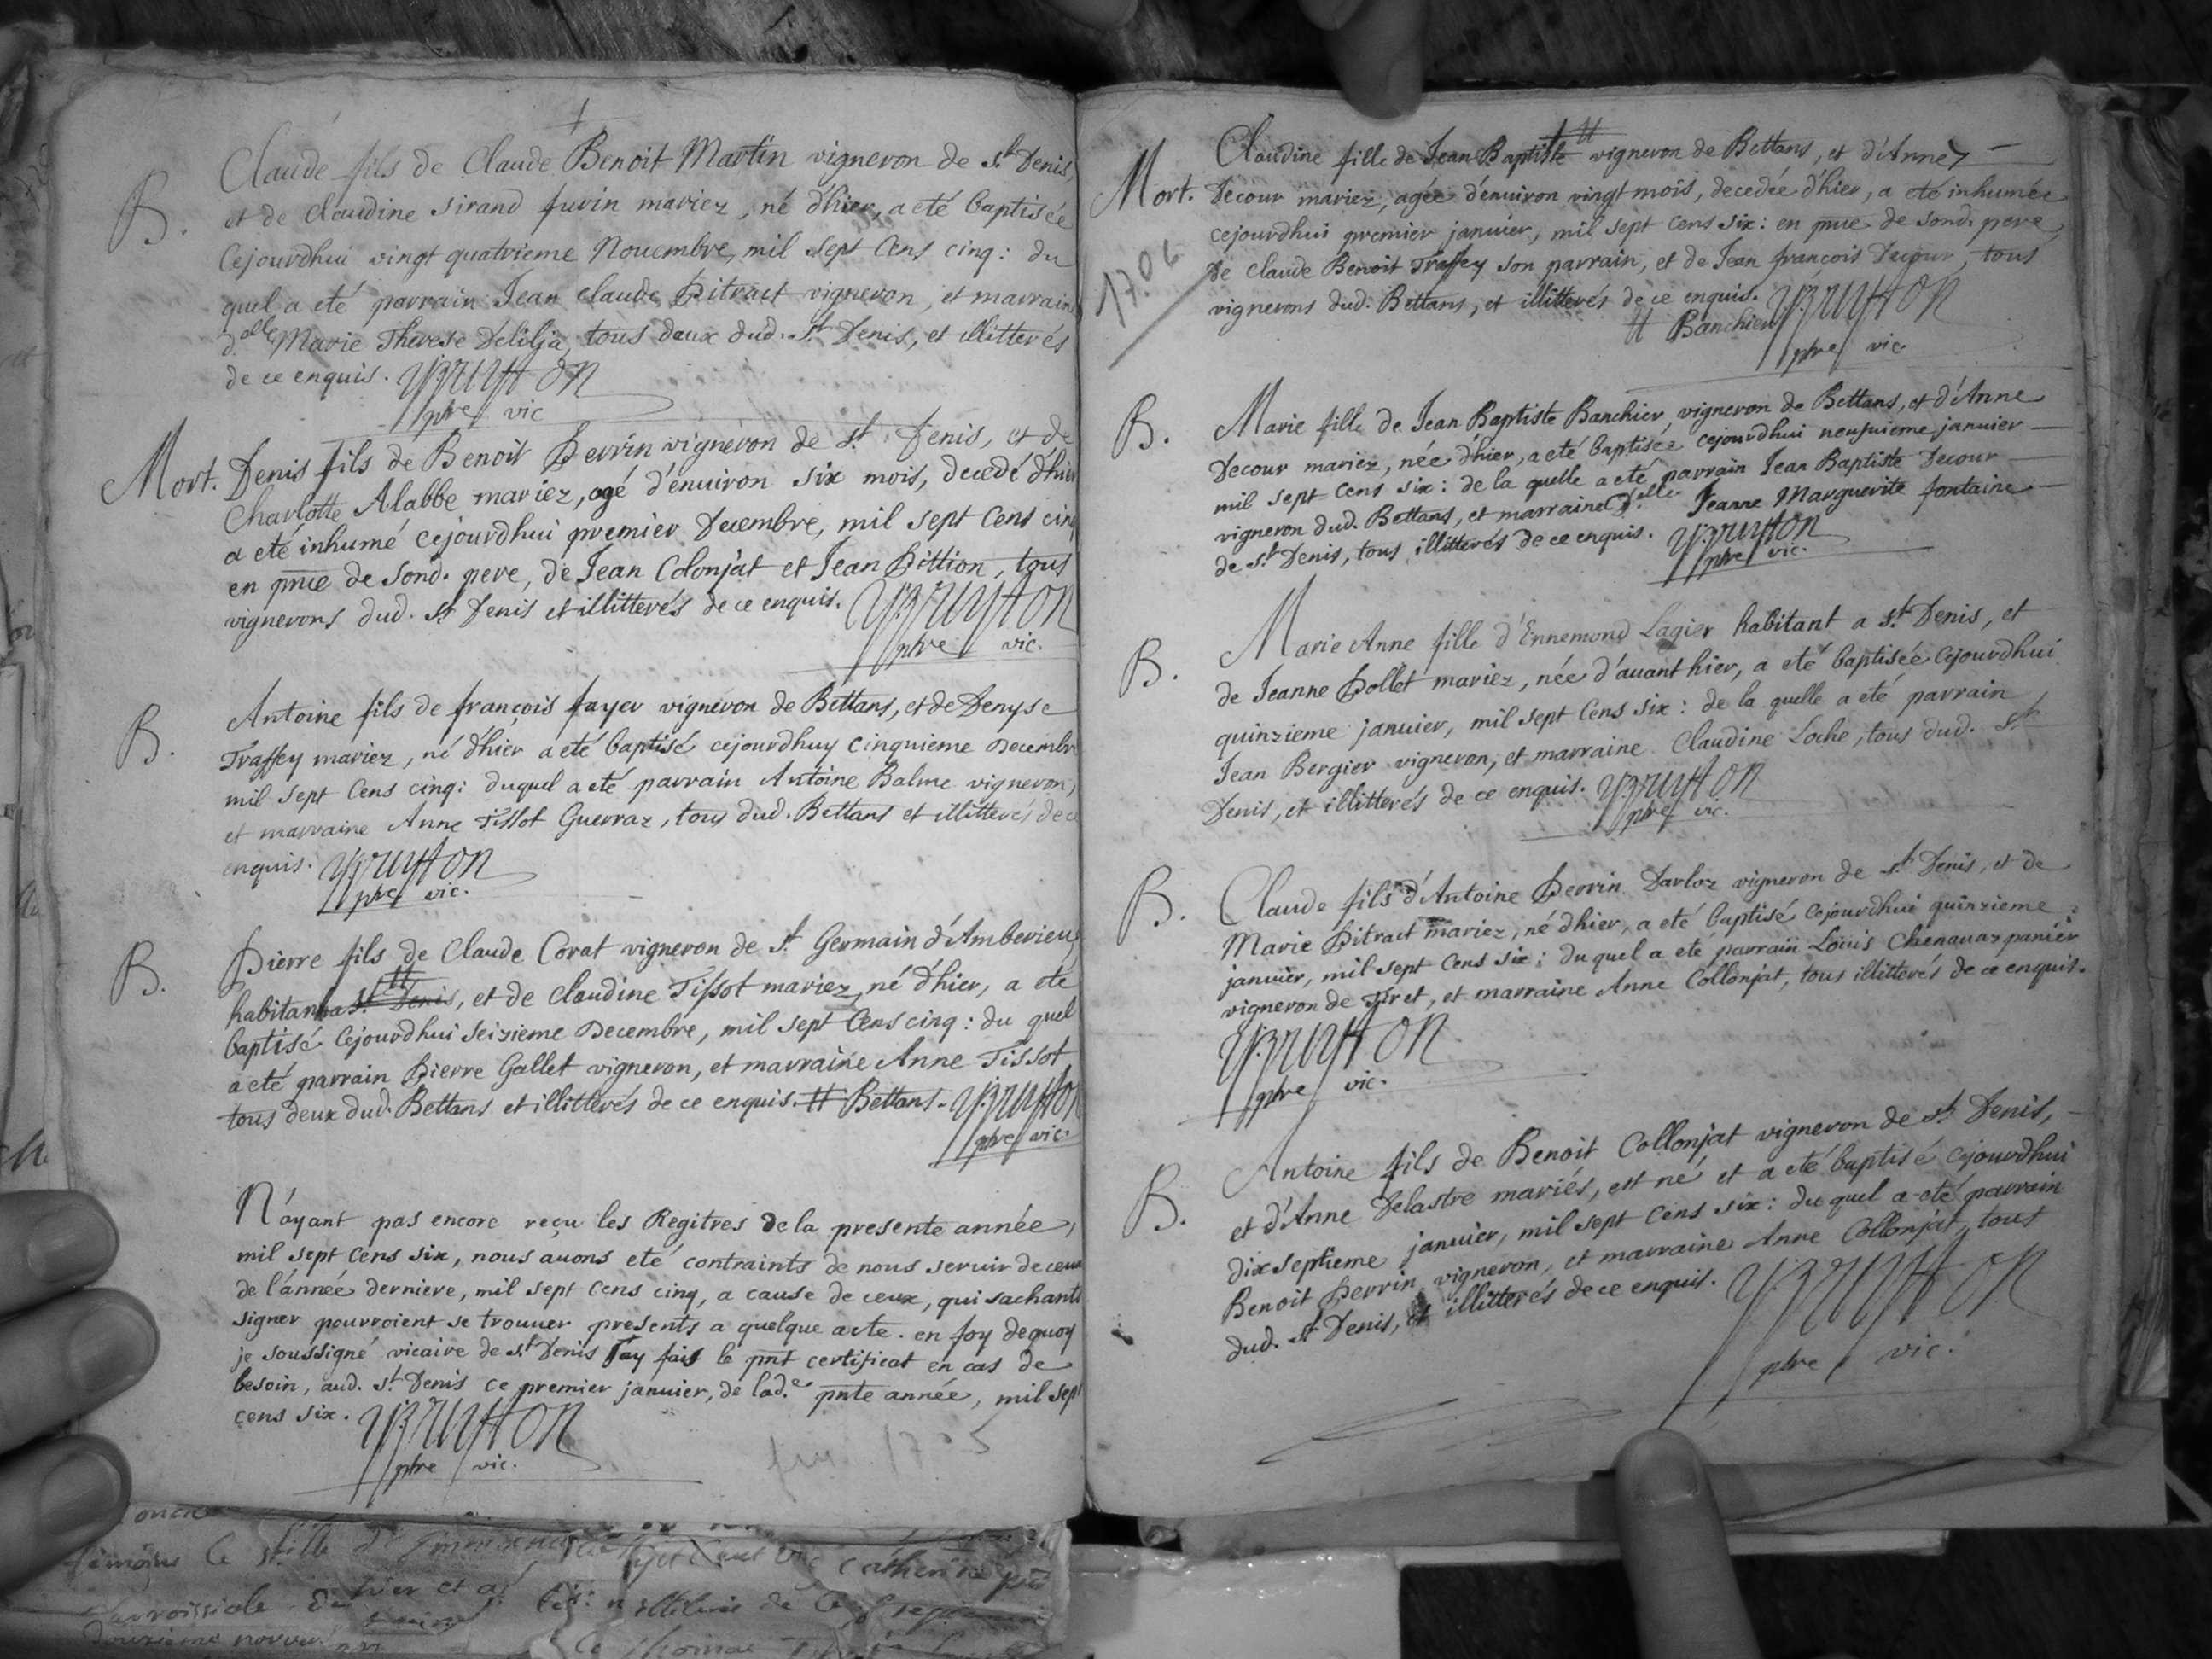 Claude fils de Claude Benoit Martin vigneron de St. Denis,
B. et de Claudine Sirand furin mariez, né d'hier, a eté baptisée
cejourdhui vingt quatrieme Nouembre, mil sept cens cinq: du
quel a eté parrain Jean Claude Pitract vigneron, et marraine
d.elle Marie Therese Delilia, tous deux dud. St. Denis, et illitterés
de ce enquis. YBruyson
pbre vic
Mort. Denis fils de Benoit Perrin vigneron de St. Denis, et de
Charlotte Alabbe mariez, agé d'enuiron six mois, decedé d'hier
a eté inhumé cejourdhui premier Decembre, mil sept cens cinq
en pnce de sond. pere, de Jean Colonjat et Jean Pittion, tous
vignerons dud. St. Denis et illitterés de ce enquis. YBruyson
pbre vic.
Antoine fils de françois fayer vigneron de Bettans, et de Denyse
B. Traffey mariez, né d'hier a eté baptisé cejourdhuy cinquieme Decembre
mil sept cens cinq: duquel a eté parrain Antoine Balme vigneron,
et marraine Anne Tissot Guerraz, tous dud. Bettans et illitterés de ce
enquis. YBruyson
pbre vic.
Pierre fils de Claude Corat vigneron de St. Germain d'Amberieu,
B. habitant a St. Denis, et de Claudine Tissot mariez, né d'hier, a ete
baptisé cejourdhui seizieme Decembre, mil sept cens cinq: du quel
a eté parrain Pierre Gallet vigneron, et marraine Anne Tissot
tous deux dud. Bettans et illitterés de ce enquis. # Bettans. YBruyson
pbre vic.
N'ayant pas encore reçu les Regitres de la presente année,
mil sept cens six, nous auons eté contraints de nous seruir de ceux
de l'année derniere, mil sept cens cinq, a cause de ceux, qui sachants
signer pourroient se trouuer presents a quelque acte. en foy dequoy
je soussigné vicaire de St. Denis J'ay fait le pnt certificat en cas de
besoin, aud. St. Denis ce premier januier, de lad.e pnte année, mil sept
cens six. YBruyson
pbre vic.
fin 1705
Claudine fille de Jean Baptiste # vigneron de Bettans, et d'Anne
Mort. Decour mariez, agée d'enuiron vingt mois, decedée d'hier, a eté inhumée
cejourdhui premier januier, mil sept cens six: en pnce de sond. pere,
1706 de Claude Benoit Traffey son parrain, et de Jean françois Decour, tous
vignerons dud. Bettans, et illitterés de ce enquis. YBruyson
# Banchier
pbre vic
Marie fille de Jean Baptiste Banchier, vigneron de Bettans, et d'Anne
B. Decour mariez, née d'hier, a eté baptisée cejourdhui neufuieme januier
mil sept cens six: de la quelle a eté parrain Jean Baptiste Decour
vigneron dud. Bettans, et marraine D.elle Jeanne Marguerite fontaine
de St. Denis, tous illitterés de ce enquis. YBruyson
pbre vic.
Marie Anne fille d'Ennemond Lagier habitant a St. Denis, et
B. de Jeanne Pollet mariez, née d'auant hier, a eté baptisée cejourdhui
quinzieme januier, mil sept cens six: de la quelle a eté parrain
Jean Bergier vigneron, et marraine Claudine Loche, tous dud. St.
Denis, et illitterés de ce enquis. YBruyson
pbre vic.
B. Claude fils d'Antoine Perrin Darloz vigneron de St. Denis, et de
Marie Pitract mariez, né d'hier, a eté baptisé cejourdhui quinzieme
januier, mil sept cens six: du quel a ete parrain Loüis Chenauaz panier
vigneron de Tiret, et marraine Anne Collonjat, tous illitterés de ce enquis.
YBruyson
pbre vic.
Antoine fils de Benoit Collonjat vigneron de St. Denis,
B. et d'Anne Delastre mariés, est né et a eté baptisé cejourdhui
dixseptieme januier, mil sept cens six: du quel a eté parrain
Benoit Perrin vigneron, et marraine Anne Collonjat, tous
dud. St. Denis, et illitterés de ce enquis. YBruyson
pbre vic.